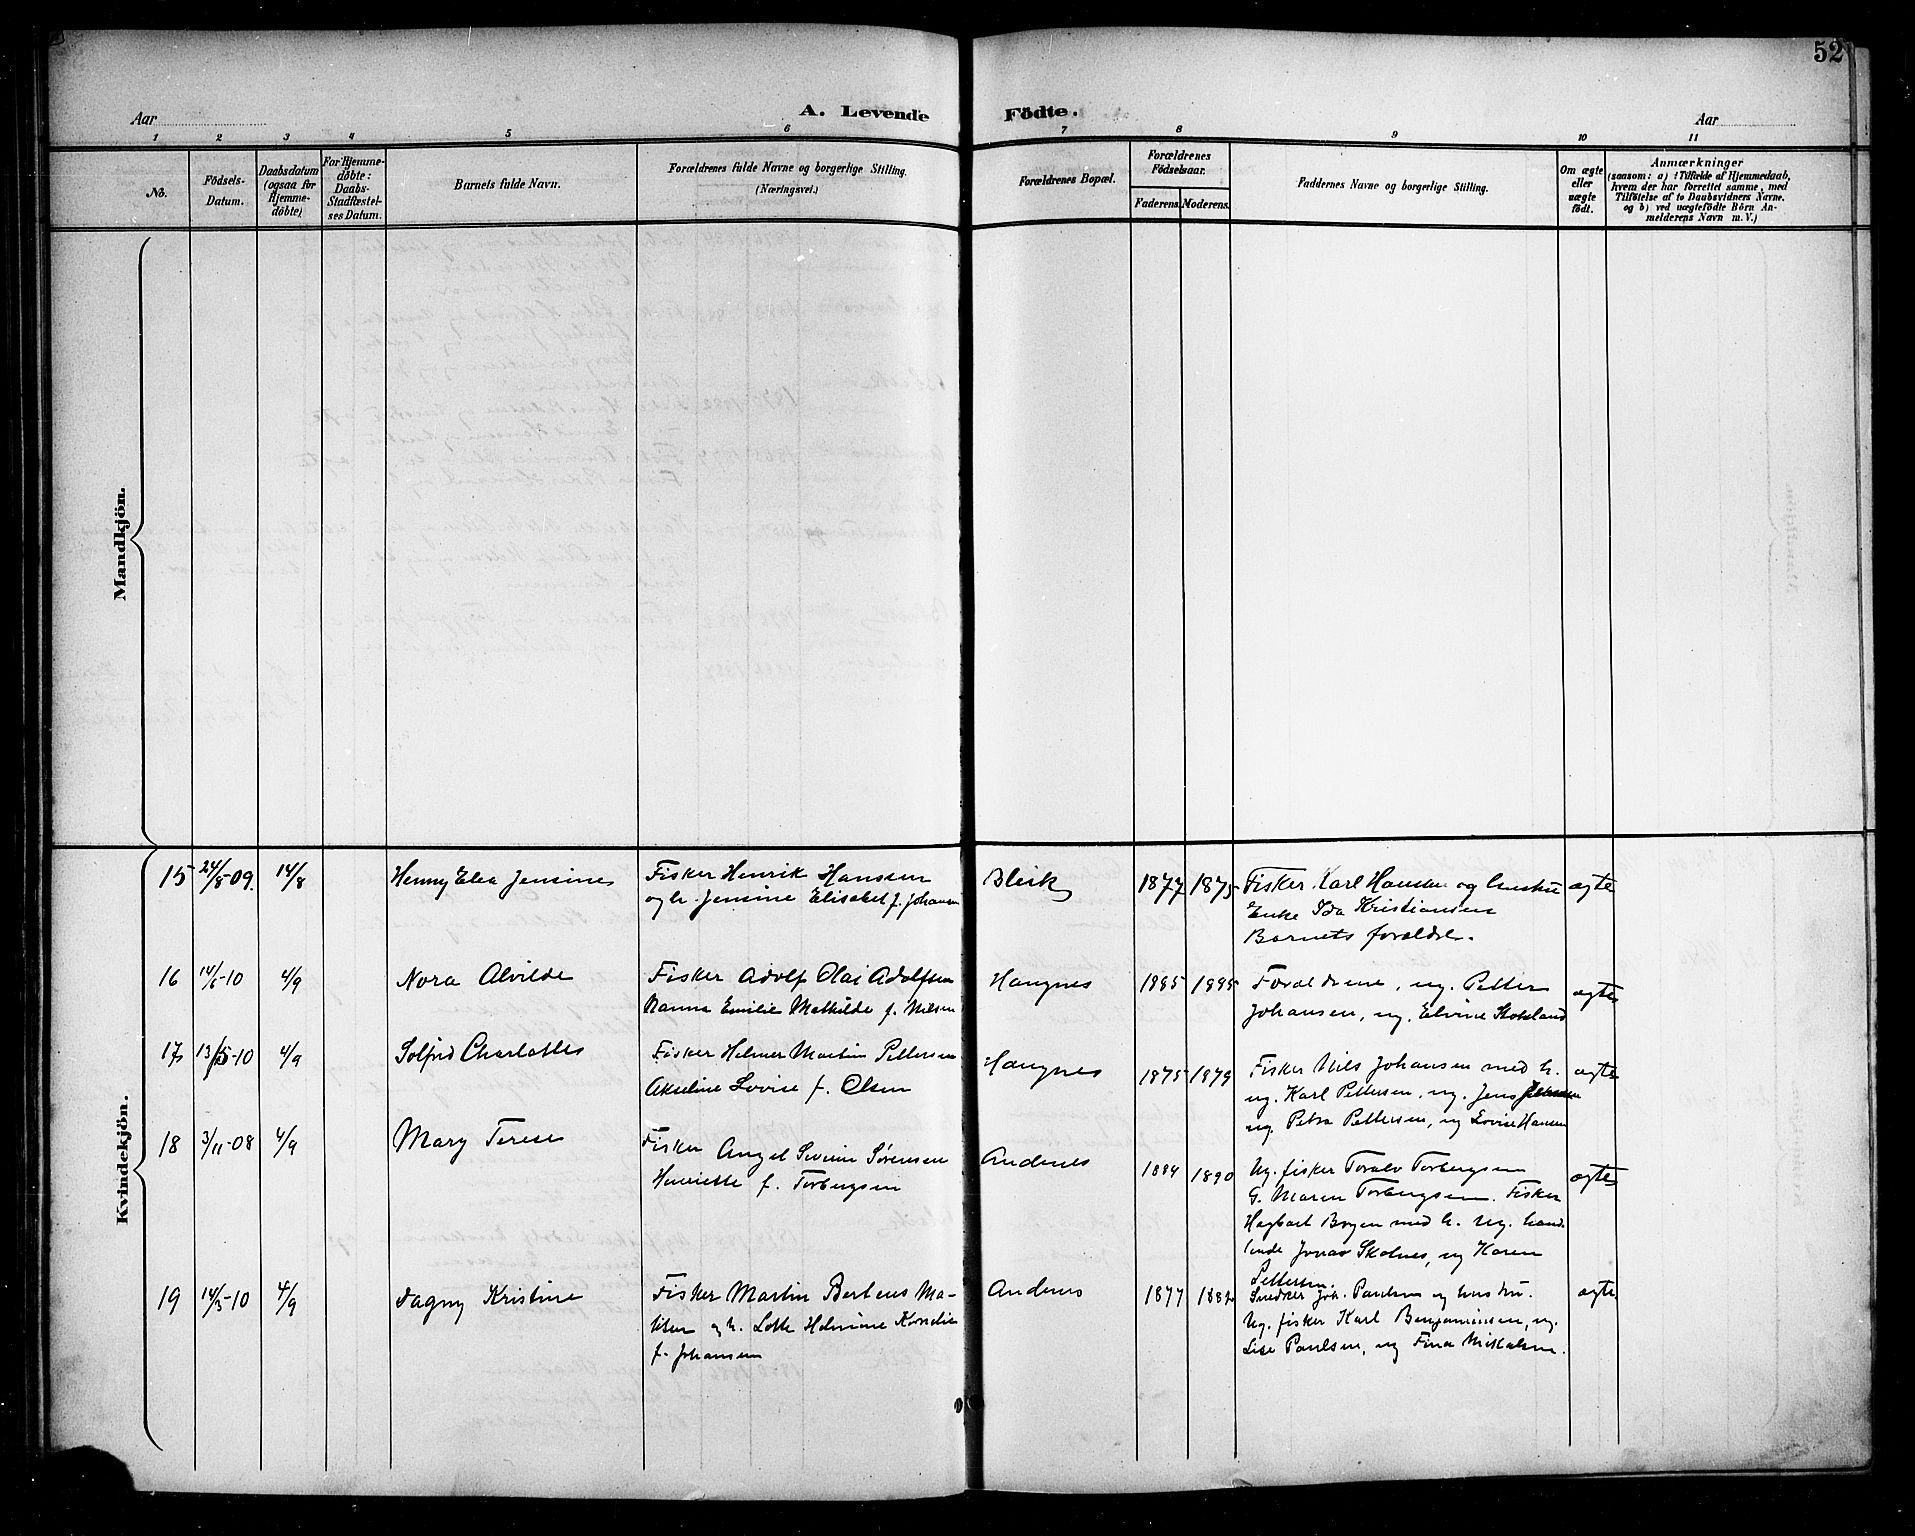 52
A. Levende Födte.
Aar
Aar
1 2 3 4 5 6 7 8 9 10 11
No.
Födsels-
Datum.
Daabsdatum
(ogsaa for
Hjemme-
döbte)
For Hjemme-
döbte:
Daabs-
Stadfæstel-
ses Datum.
Barnets fulde Navn.
Forældrenes fulde Navne og borgerlige Stilling.
(Næringsvei.)
Forældrenes Bopæl.
Forældrenes
Födselsaar.
Faderens. Moderens.
Faddernes Navne og borgerlige Stilling.
Om ægte
eller
uægte
födt.
Anmærkninger
(saasom: a) i Tilfælde af Hjemmedaab,
hvem der har forrettet samme, med
Tilföielse af to Daabsvidners Navne.
og b) ved uægtefödte Börn An-
melderens Navn m. V.)
Mandkjön.
Kvindekjön.
15 24/8-09. 14/8 Henny Elea Jensine
Fisker Henrik Hanssen
og h. Jensine Elisabet f. Johansen
Bleik 1877 1875
Fisker Karl Hansen og hustru
Enke Ida Kristiansen
Barnets forældre.
ægte
16 14/6-10 4/9 Nora Alvilde
Fisker Adolf Olai Adolfsen
Nanna Emilie Mathilde f. Nilsen
Haugnes 1885
Forældrene, ug. Petter
Johansen, ug. Elvine Stokland
ægte
17 13/5-10 4/9 Solfrid Charlotte
Fisker Helmer Martin Pettersen
Akseline Lovise f. Olsen
Haugnes 1875 1879
Fisker Nils Johansen med h.
ug. Karl Pettersen, ug. Jens
ug. Petra Pettersen, ug Lovise Hansen
ægte
18 3/11-08 4/9 Mary Terese
Fisker Angel Severin Sørensen
Henriette f. Torbergsen
Andenes 1884 1890
Ug. fisker Toralv Torbergsen
G. Maren Torbergsen. Fisker
Hagbart Bogen med h. Ug. hand
lende Jonas Skolnes, ug Karen
Pettersen.
ægte
19 14/3-10 4/9 Dagny Kristine
Fisker Martin Berteus Ma-
tisen og h. Lotte Helmine Kornelie
f. Johansen
Andenes 1877 1882
Snedker Joh. Paulsen og hustru.
Ug. fisker Karl Benjaminsen, ug.
Lise Paulsen, ug Fina Mikalsen.
ægte